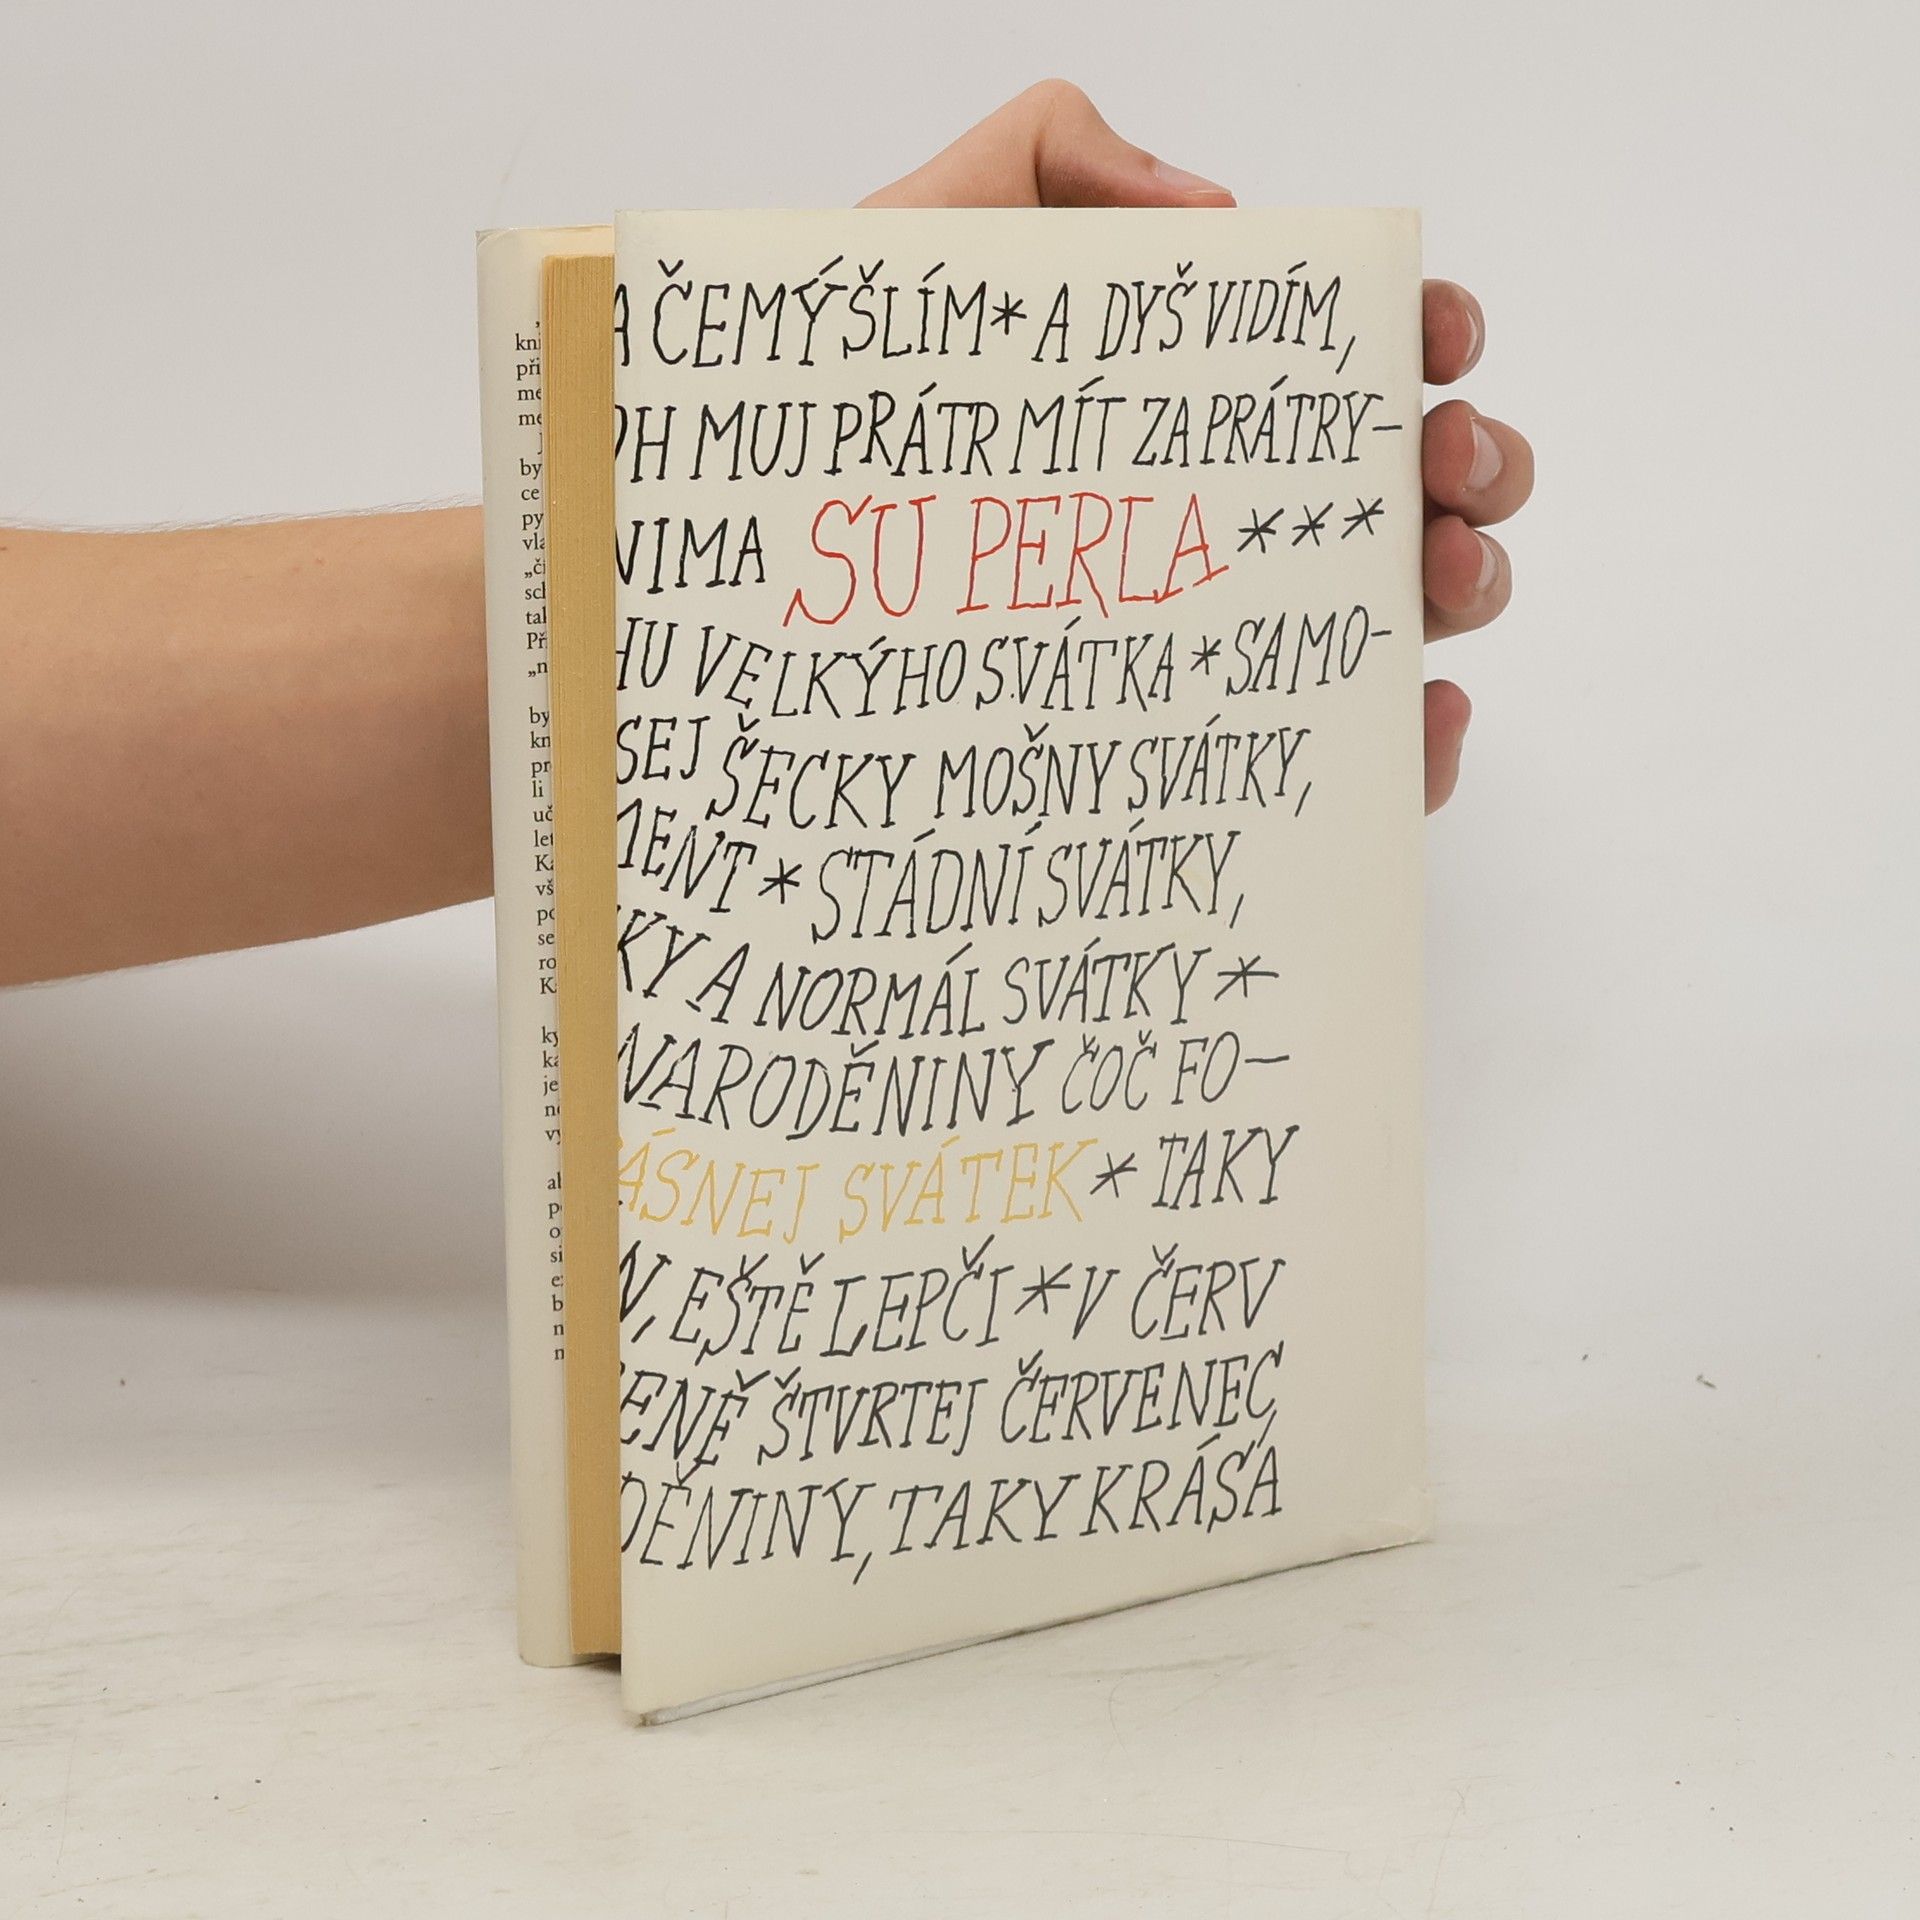 A ČEMÝŠLÍM * A DYŠ VIDÍM,
OH MUJ PRÁTR MÍT ZA PRÁTRY–
NIMA SU PERLA ***
HU VELKÝHO SVÁTKA * SAMO–
SEJ ŠECKY MOŠNY SVÁTKY,
MENT * STÁDNÍ SVÁTKY,
KY A NORMÁL SVÁTKY *
NARODĚNINY ČOČ FO–
ÁSNEJ SVÁTEK * TAKY
N, EŠTĚ LEPČI * V ČERV
ENĚ ŠTVRTEJ ČERVENEC,
DĚNINY, TAKY KRÁSA
kni
při
me
me
J
by
ce
py
vla
„či
sch
tak
Př
„n
by
kn
pr
li
uč
let
Ka
vš
po
se
ro
K
ky
ka
je
ne
vy